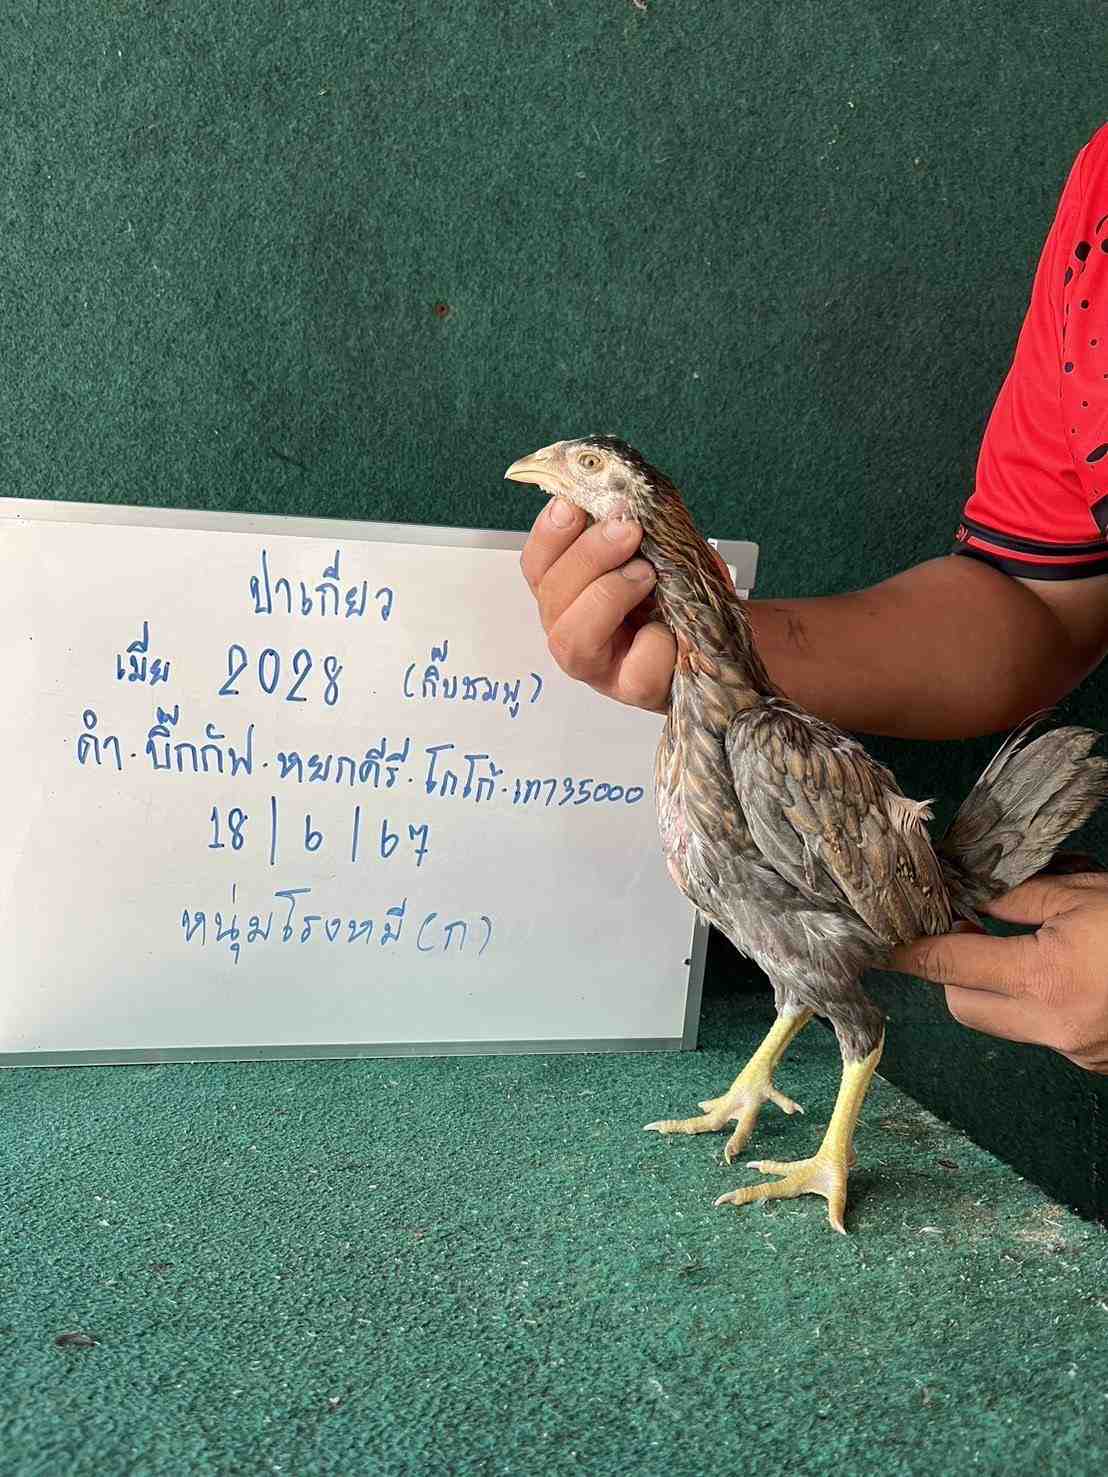 ป่าเกี๋ยว
เมีย 2028 (กิ๊บชมพู)
ดำ.บิ๊กกัฟ.หยกคีรี.โกโก้.เทา35000
18/6/67
หนุ่มโรงหมี่(ก)